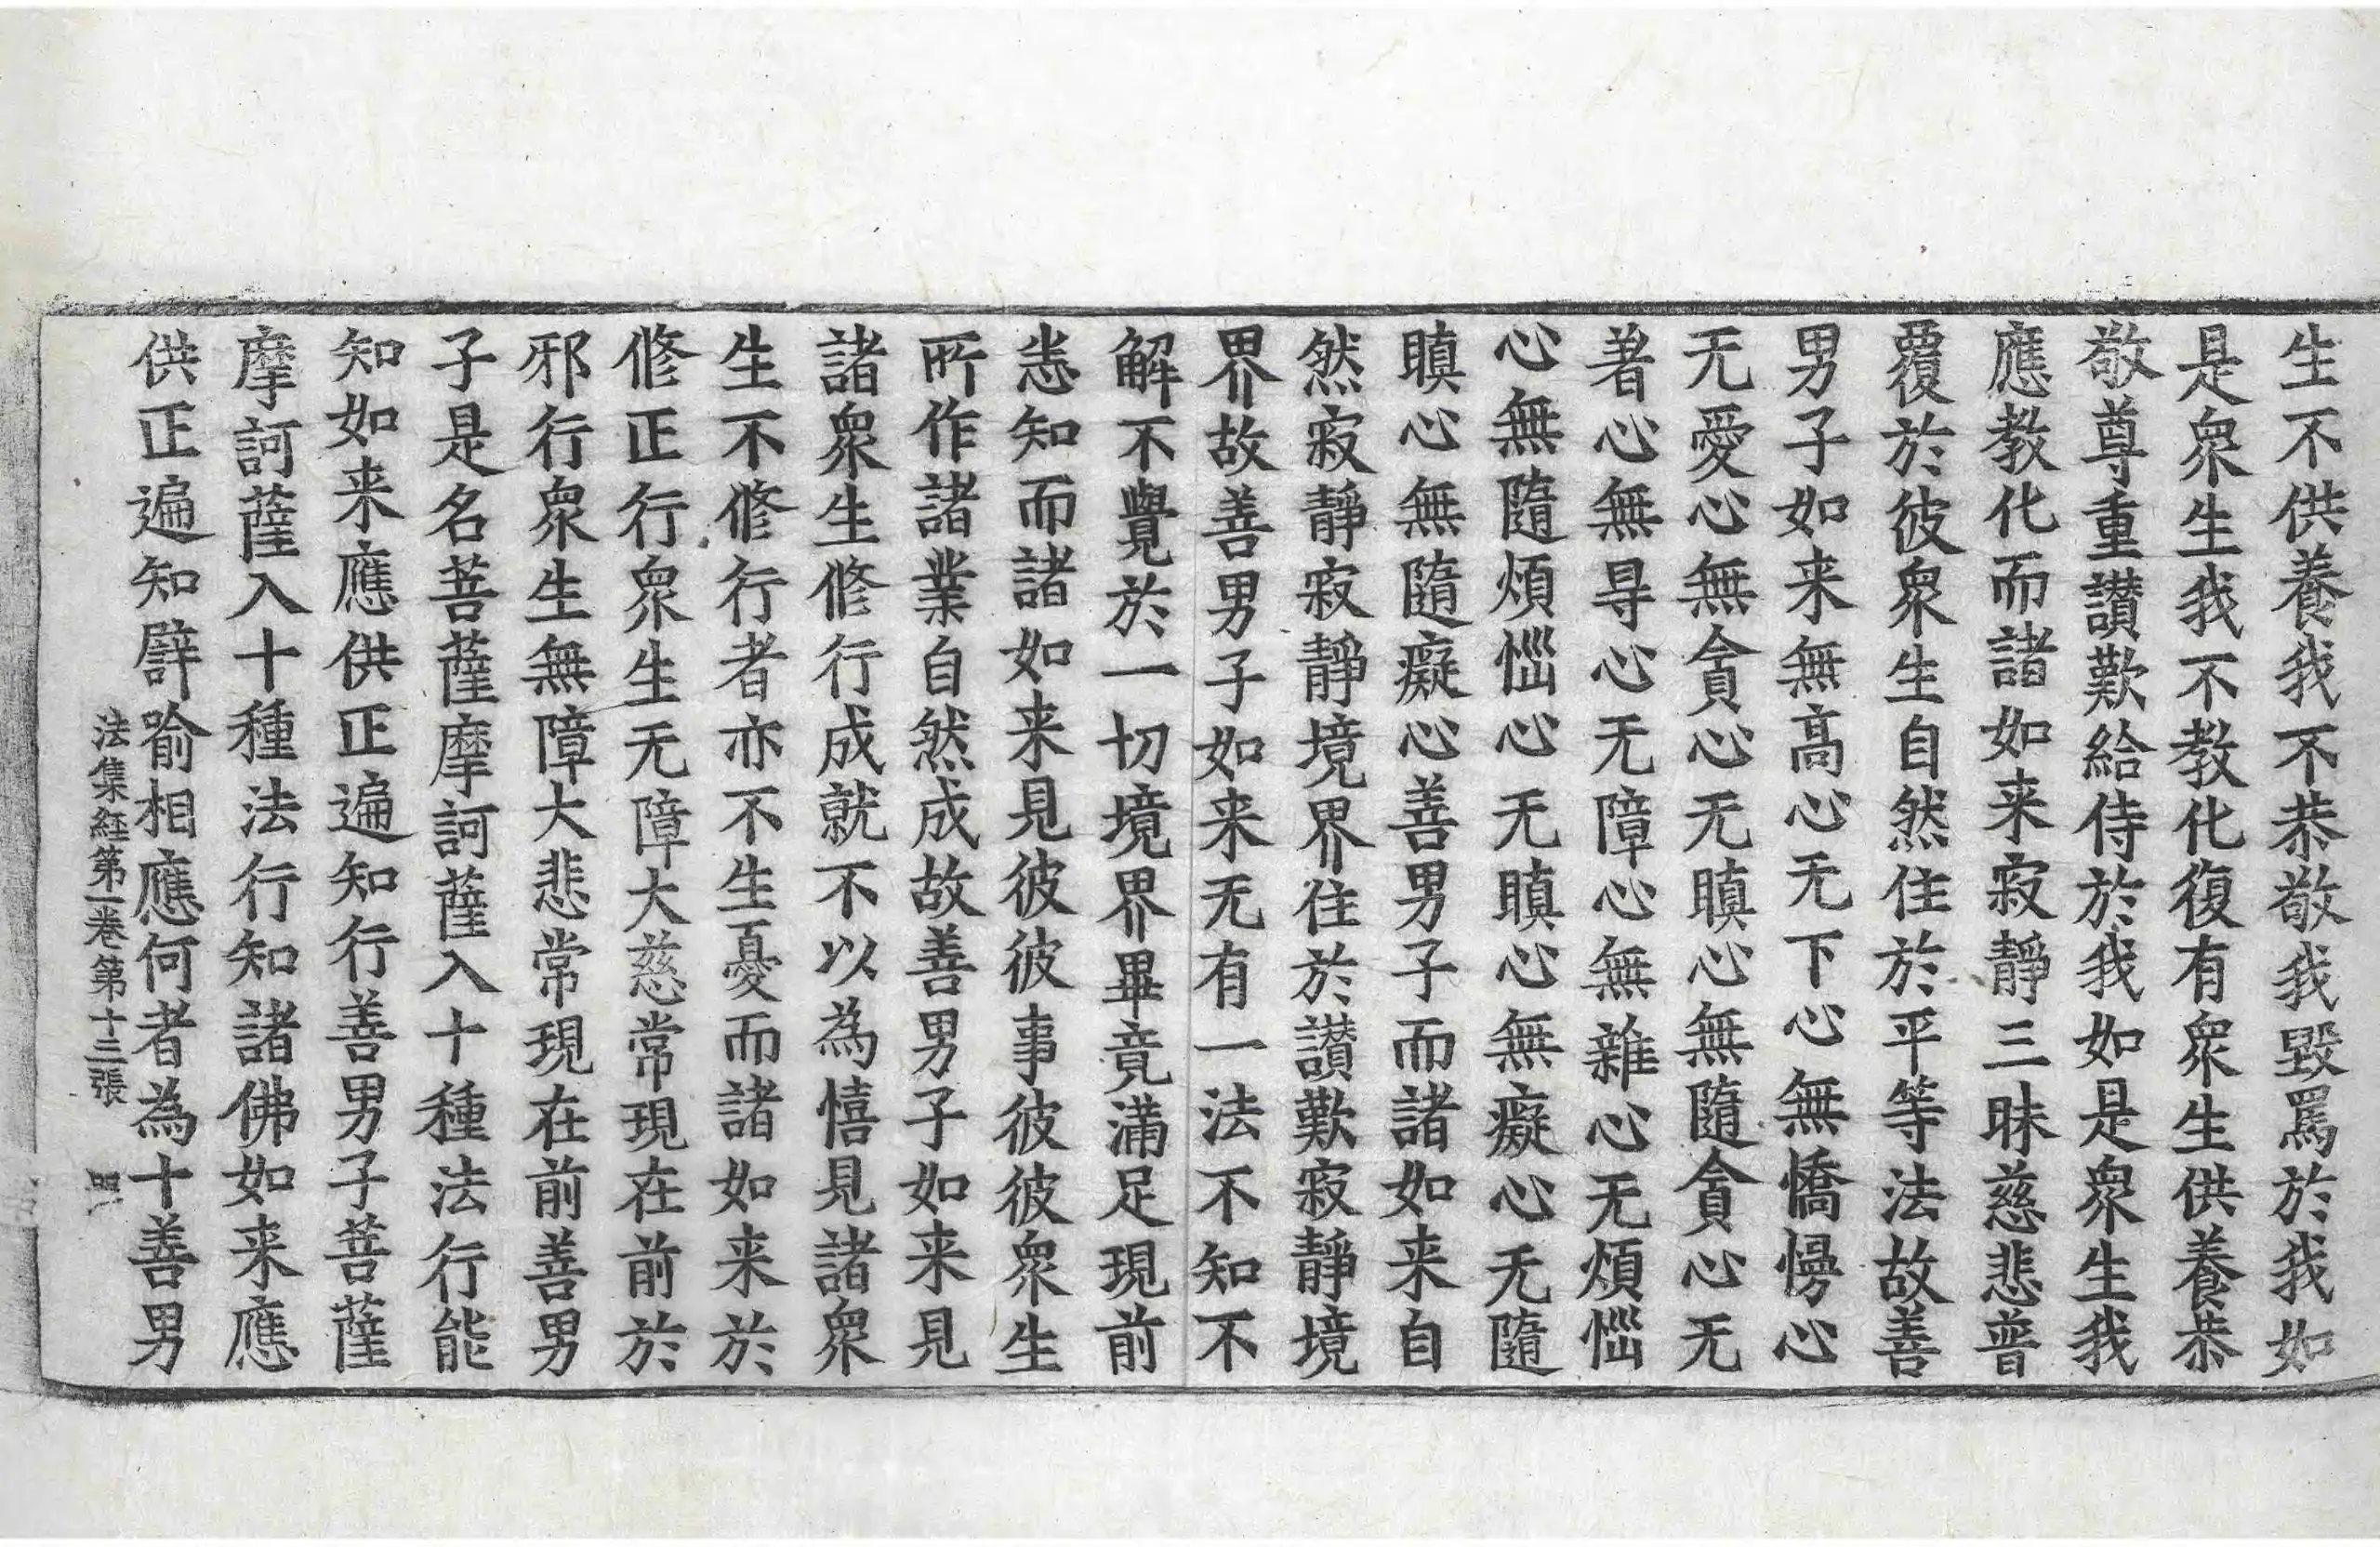 生不供養我不恭敬我毀罵於我如
是衆生我不教化復有衆生供養恭
敬尊重讃歎給侍於我如是衆生我
應教化而諸如来寂靜三昧慈悲普
覆於彼衆生自然住於平等法故善
男子如来無高心无下心無憍慢心
无愛心無貪心无瞋心無隨貪心无
著心無㝵心无障心無雜心无煩惱
心無隨煩惱心无瞋心無癡心无隨
瞋心無隨癡心善男子而諸如来自
然寂靜寂靜境界住於讃歎寂靜境
界故善男子如来无有一法不知不
解不覺於一切境界畢竟滿足現前
悉知而諸如来見彼彼事彼彼衆生
所作諸業自然成故善男子如来見
諸衆生修行成就不以為憘見諸衆
生不修行者亦不生憂而諸如来於
修正行衆生无障大慈常現在前於
邪行衆生無障大悲常現在前善男
子是名菩薩摩訶薩入十種法行能
知如来應供正遍知行善男子菩薩
摩訶薩入十種法行知諸佛如来應
供正遍知譬喻相應何者為十善男
法集經第一卷第十三張